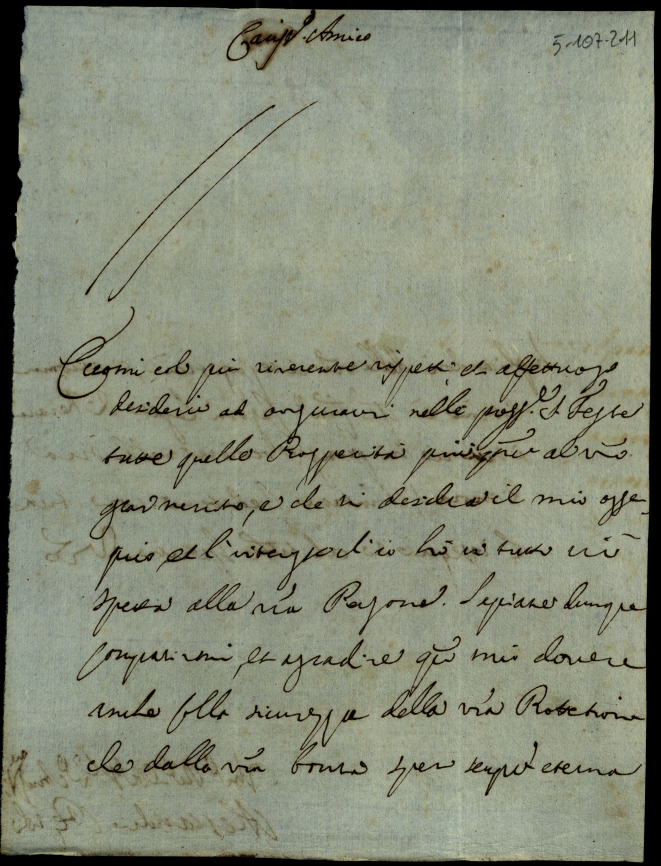 Cariss.º Amico
5-107-211
Eccomi col più riverente rispetto et affettuoso
desiderio ad augurarvi nelle pross.e S. Feste
tutte quelle Prosperità al v̄ro
gran merito, e che vi desidera il mio osse-
quio et l'interesse ch'io hò in tutto ciò
spetta alla v̄ra Persona. dunque
compatirmi, et agradire q̄to mio dovere
anche sulla sicurezza della v̄ra Protetione
che dalla v̄ra bontà eterna